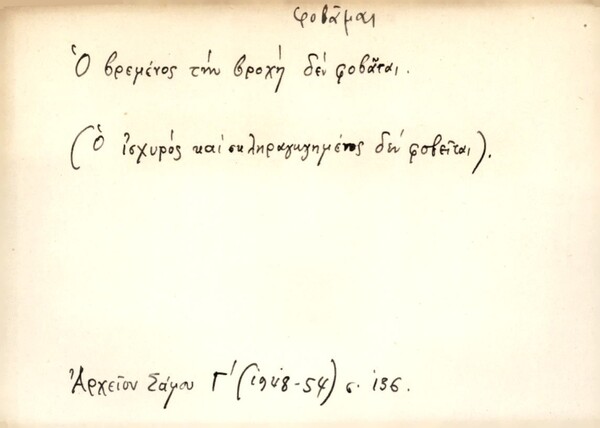 φοβᾶμαι
Ὁ βρεμένος τήν βροχή δέν φοβᾶται.
(Ὁ ἰσχυρός καί σκληραγωγημένος δέν φοβεῖται).
Ἀρχεῖον Σάμου Γ' (1948-54) σ. 136.